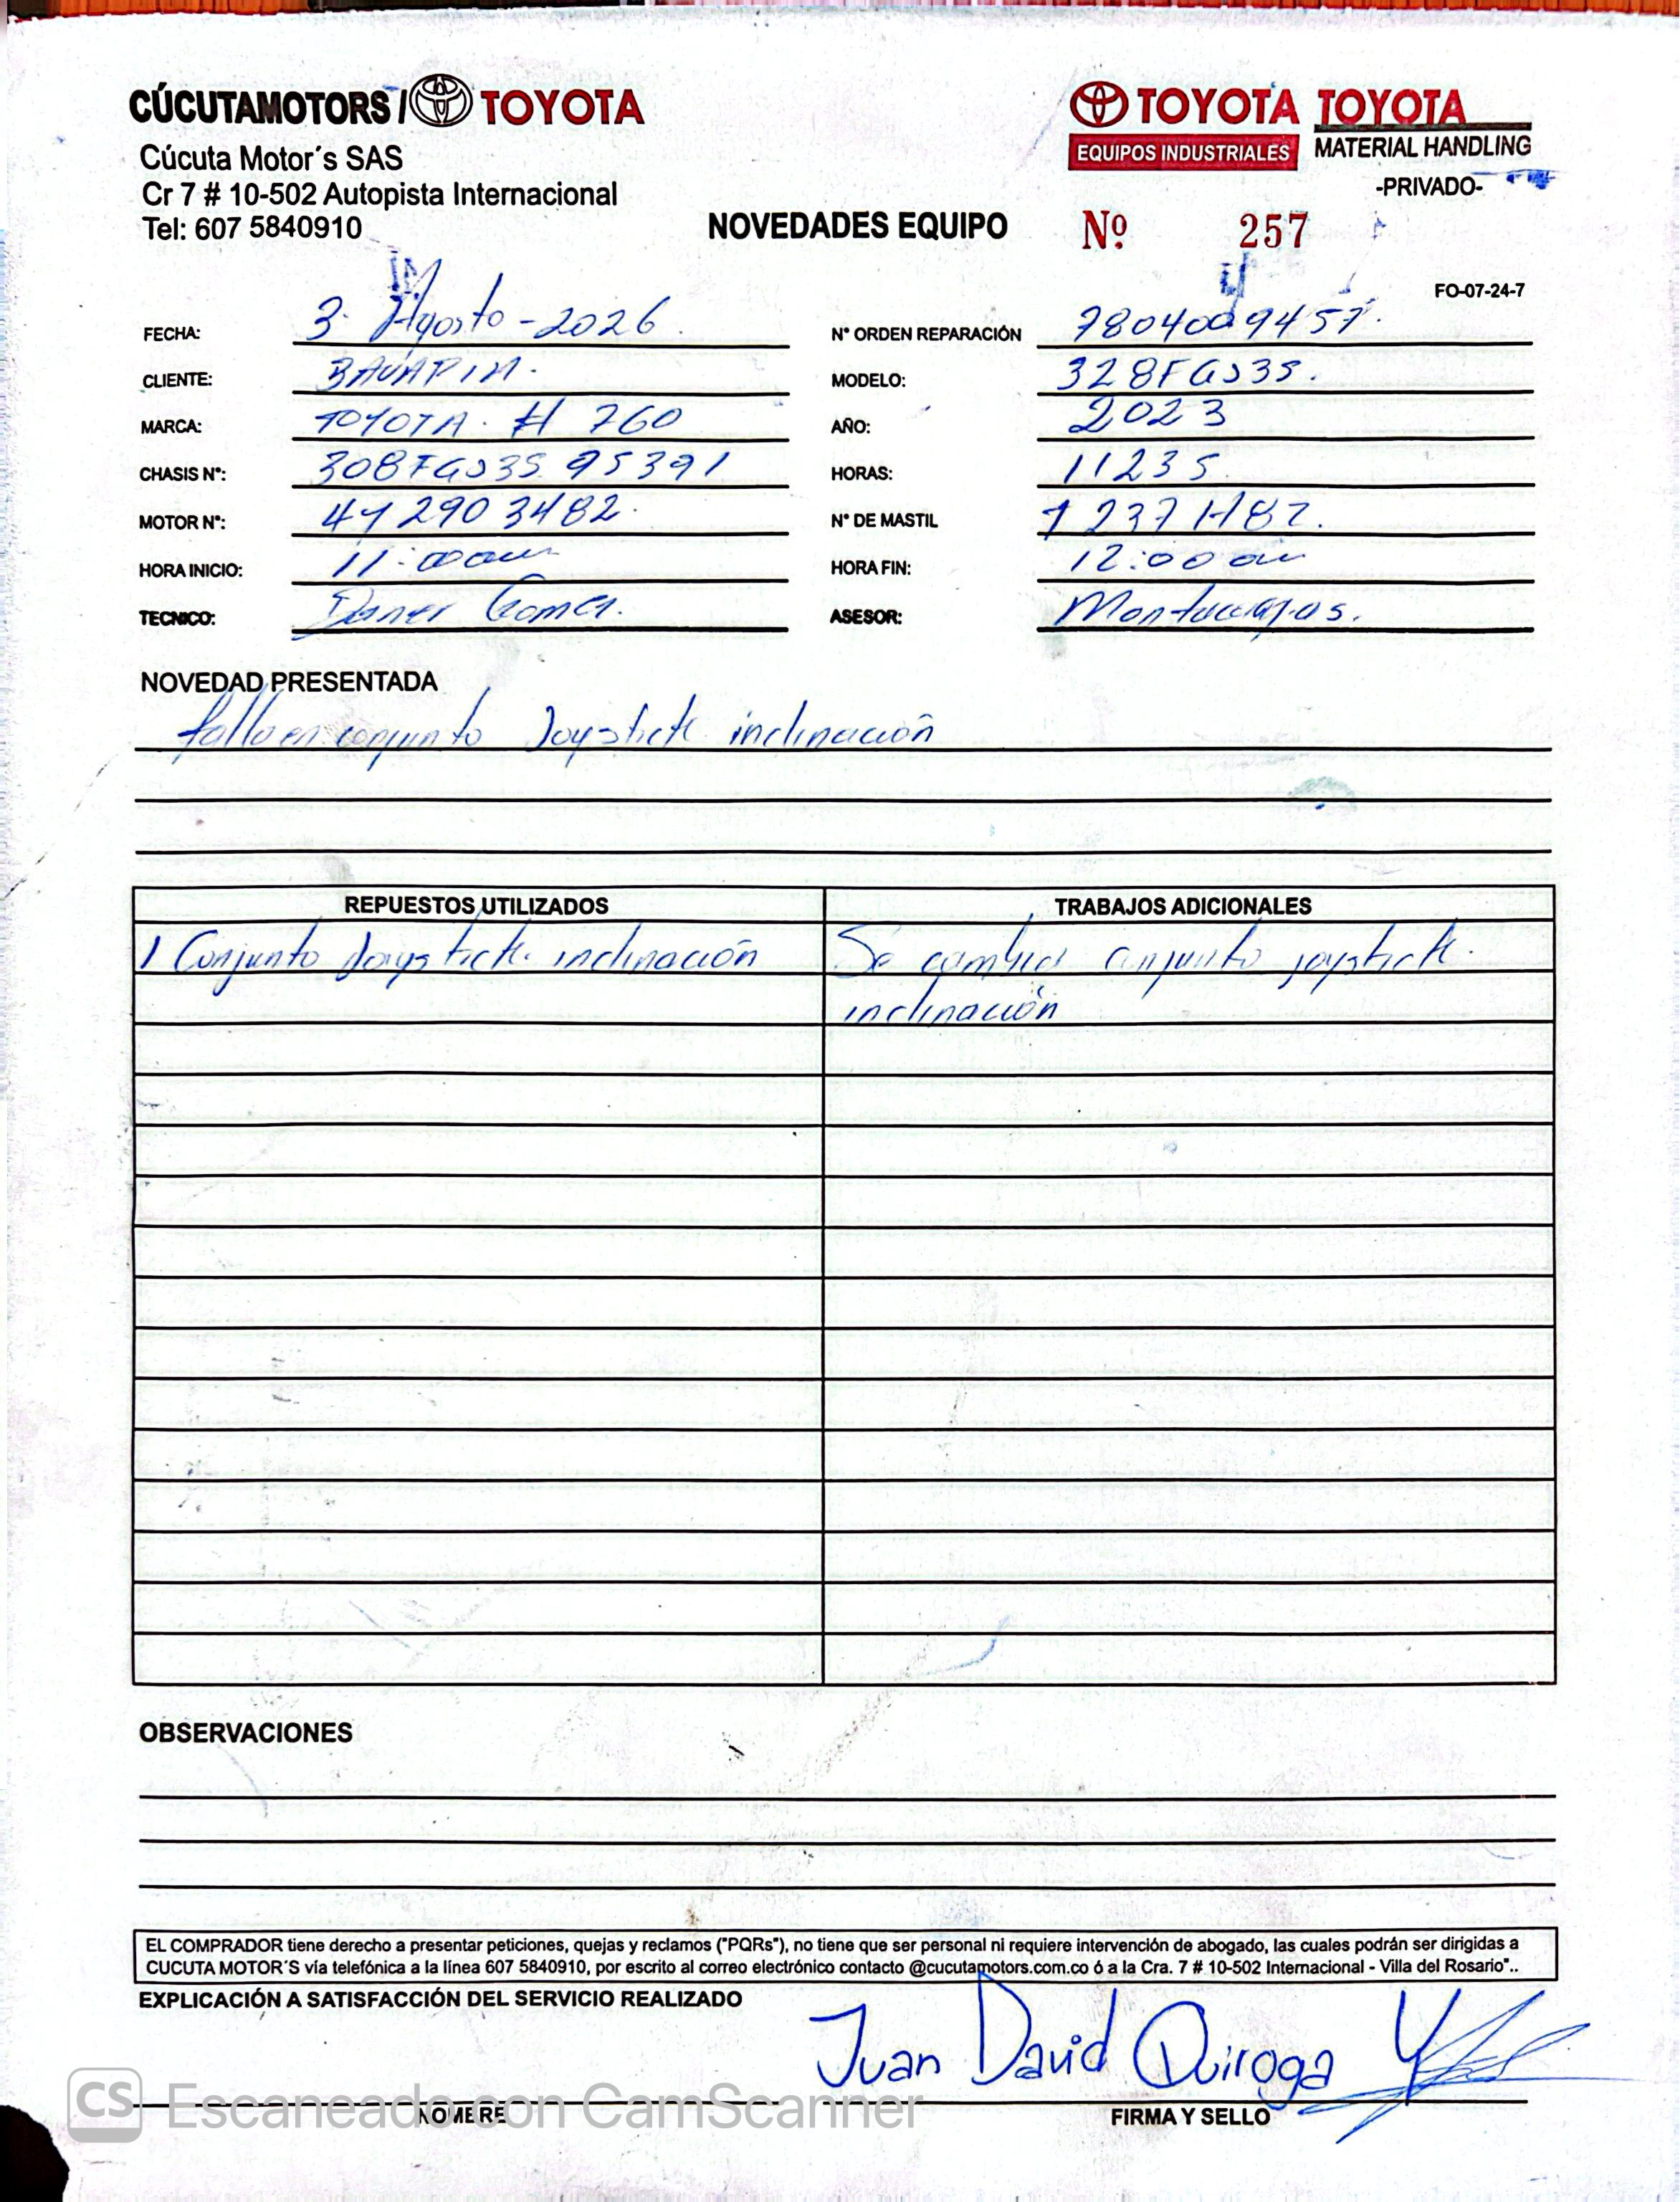 CÚCUTAMOTORS / TOYOTA
TOYOTA TOYOTA
EQUIPOS INDUSTRIALES MATERIAL HANDLING
Cúcuta Motor´s SAS
Cr 7 # 10-502 Autopista Internacional
-PRIVADO-
Tel: 607 5840910
NOVEDADES EQUIPO Nº 257
FO-07-24-7
FECHA: 3 Agosto - 2026 N° ORDEN REPARACIÓN
CLIENTE: BAVARIA. MODELO: 328FGJ35.
MARCA: TOYOTA. # 760 AÑO: 2023
CHASIS N°: 308FGJ35 95391 HORAS: 11235.
MOTOR N°: 4Y 290 3482. N° DE MASTIL
HORA INICIO: 11:00am HORA FIN: 12:00am
TECNICO: Daner Gomez. ASESOR: Montacargas.
NOVEDAD PRESENTADA
falla en conjunto Joystick inclinación
REPUESTOS UTILIZADOS TRABAJOS ADICIONALES
1 Conjunto Joystick inclinación Se cambia conjunto joystick.
inclinación
OBSERVACIONES
EL COMPRADOR tiene derecho a presentar peticiones, quejas y reclamos ("PQRs"), no tiene que ser personal ni requiere intervención de abogado, las cuales podrán ser dirigidas a
CUCUTA MOTOR´S vía telefónica a la línea 607 5840910, por escrito al correo electrónico contacto @cucutamotors.com.co ó a la Cra. 7 # 10-502 Internacional - Villa del Rosario"..
EXPLICACIÓN A SATISFACCIÓN DEL SERVICIO REALIZADO
Juan David Quiroga Y
NOMBRE FIRMA Y SELLO
CS Escaneado con CamScanner